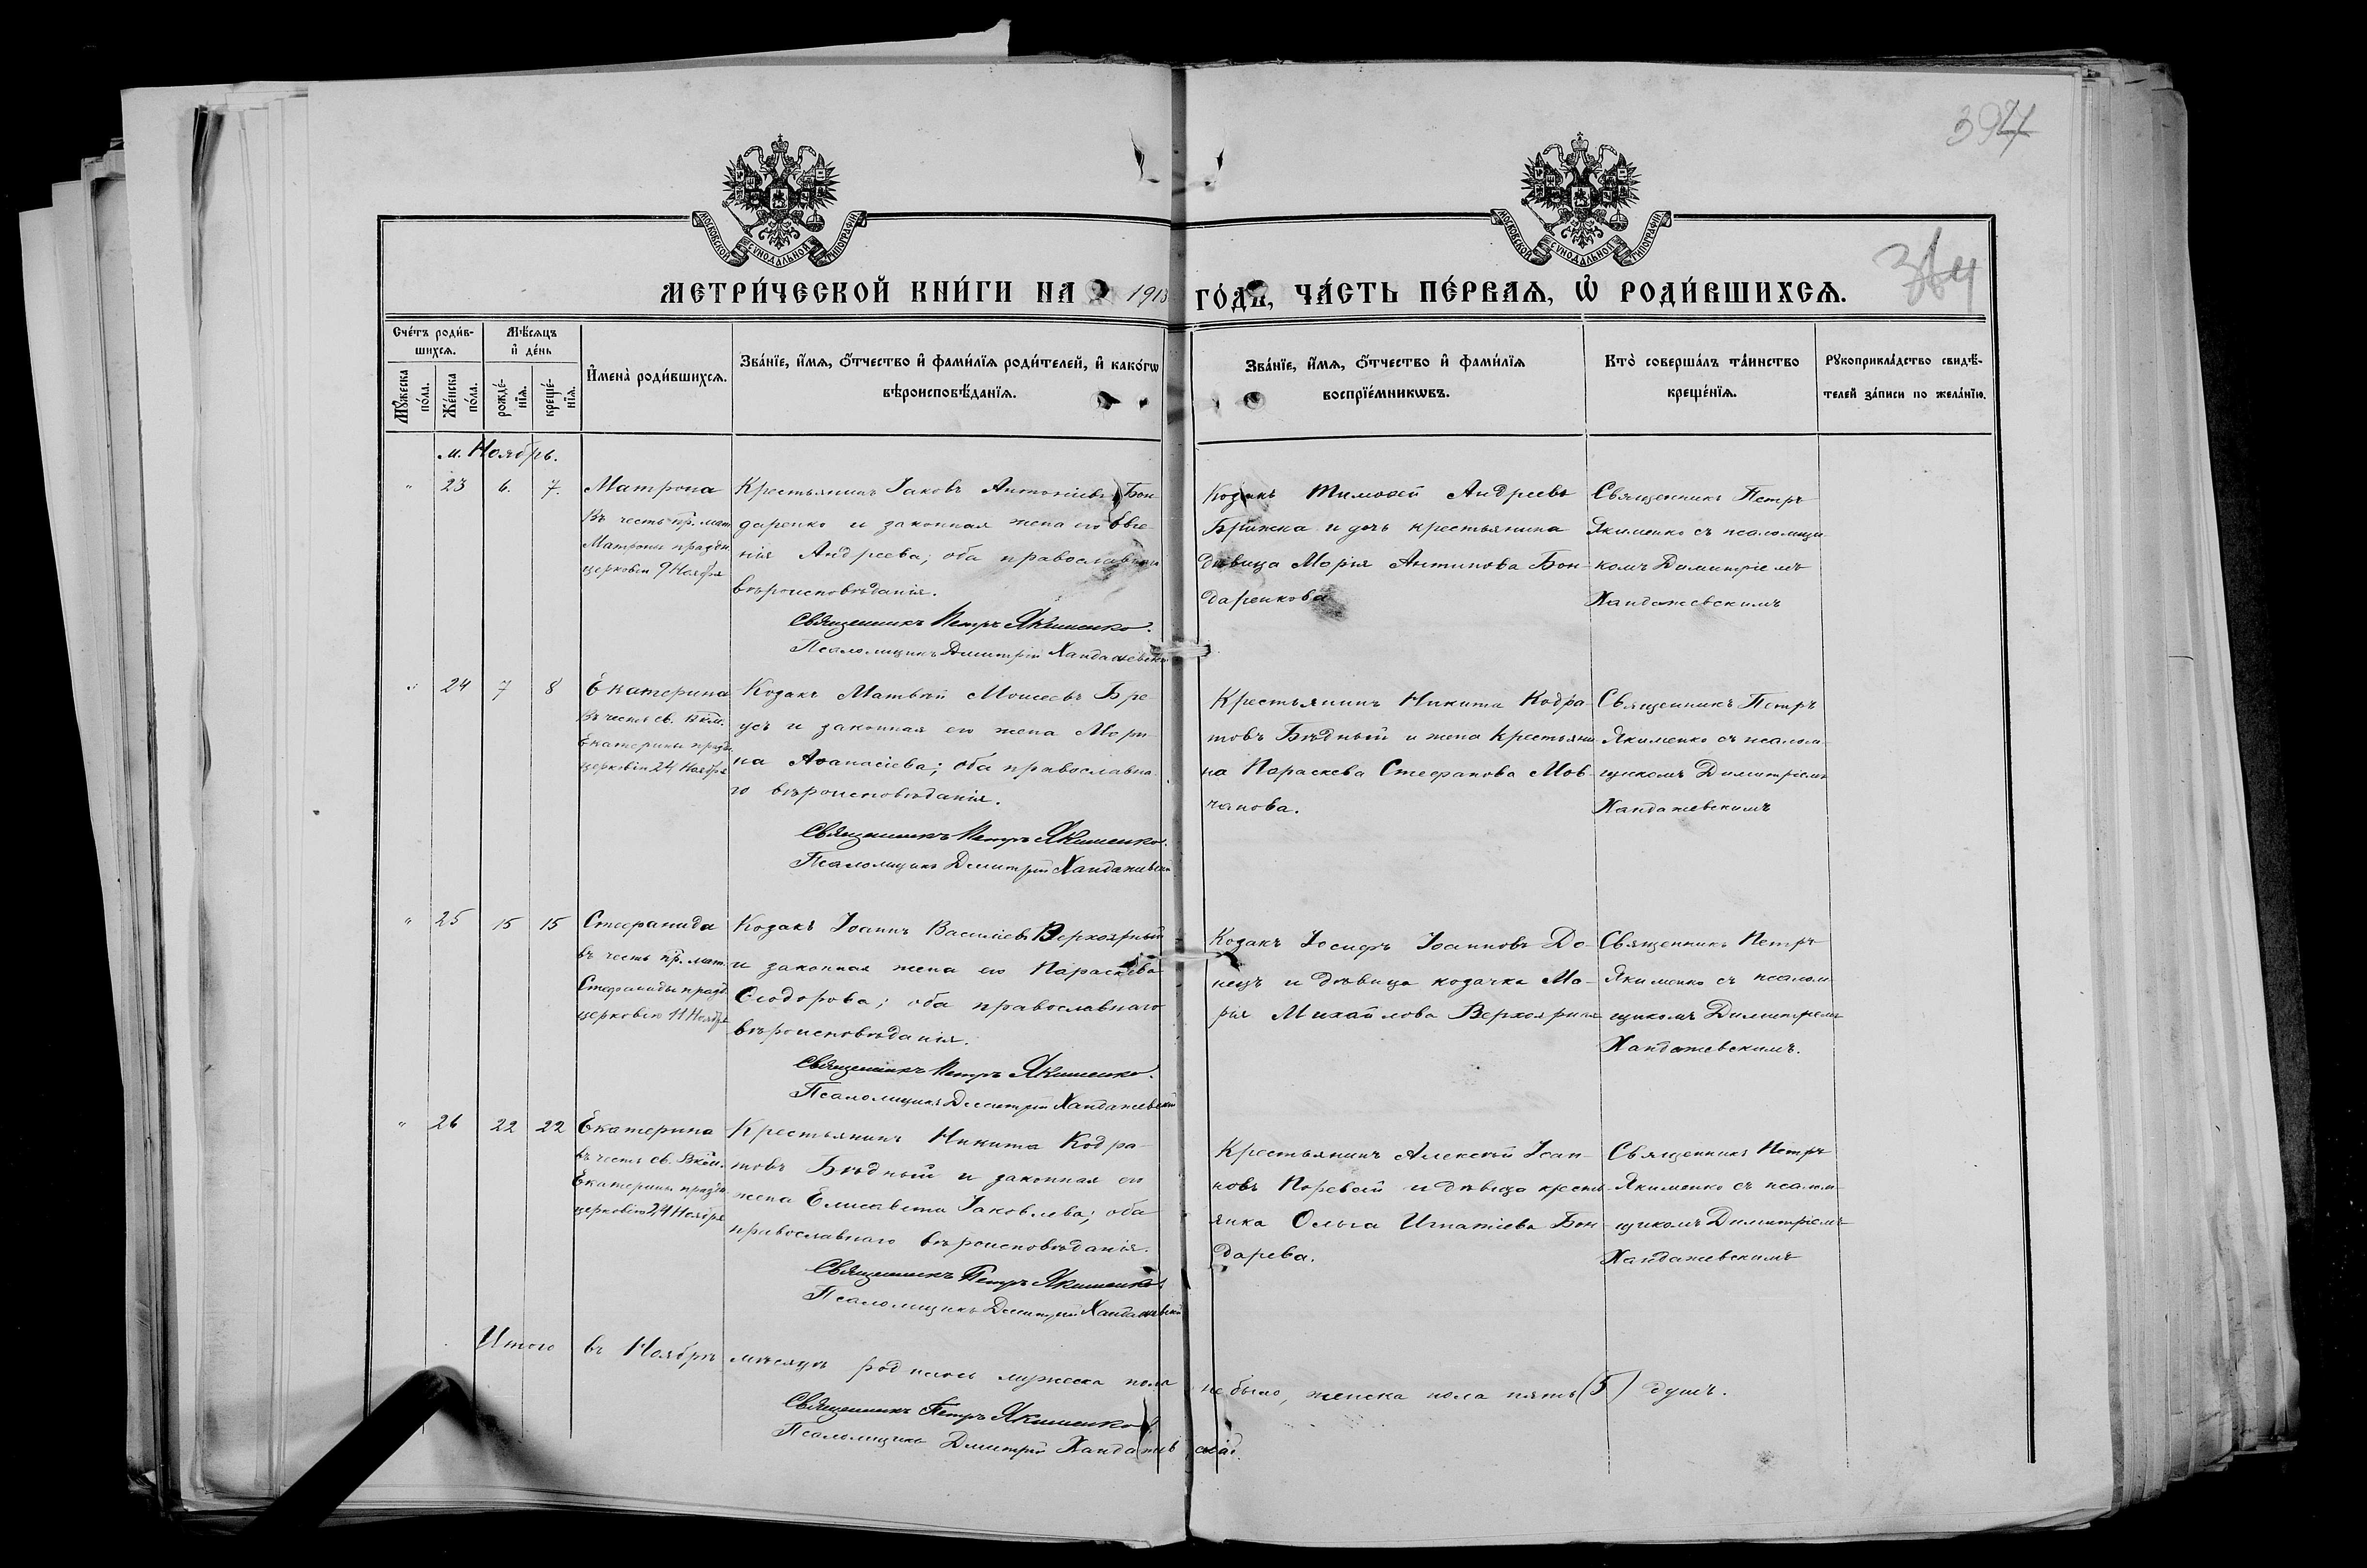 397
МОСКОВСКОЙ СУНОДАЛЬНОЙ ТИПОГРАФІИ
МОСКОВСКОЙ СУНОДАЛЬНОЙ ТИПОГРАФІИ
МЕТРИ́ЧЕСКОЙ КНИ́ГИ НА 1913 ГО́ДЪ, ЧА́СТЬ ПЕ́РВАЯ, Ѡ РОДИ́ВШИХСЯ.
Сче́тъ роди́в-
шихся.
Мѣ́сяцъ
и де́нь
Мꙋ́жеска по́ла.
Же́нска по́ла.
рожде́-
нїя.
креще́-
нїя.
Имена̀ роди́вшихся.
Зва́нїе, и́мя, о́тчество и фами́лїя роди́телей, и како́гѡ
вѣроисповѣ́данїя.
Зва́нїе, и́мя, о́тчество и фами́лїя
воспрїе́мникѡвъ.
Кто̀ соверша́лъ та́инство
креще́нїя.
Рꙋкоприкла́дство свидѣ́-
телей за́писи по жела́нїю.
м. Ноябрь.
" 23 6. 7.
Матрона
Въ честь пр. мат.
Матроны праздн.
церковію 9 Ноября
Крестьянинъ Іаковъ Антоніевъ Бон-
даренко и законная жена его Евге-
нія Андреева; оба православнаго
вѣроисповѣданія.
Священникъ Петръ Якименко.
Псаломщикъ Димитрій Хандажевскій
Козакъ Тимоѳей Андреевъ
Брижка и дочь крестьянина
дѣвица Марія Антипова Бон-
даренкова
Священникъ Петръ
Якименко съ псаломщи-
комъ Димитріемъ
Хандажевскимъ
" 24 7 8
Екатерина
Въ честь св. Вкм.
Екатерины празд.
церковію 24 Ноября
Козакъ Матвѣй Моисеевъ Бре-
усъ и законная его жена Мари-
на Аѳанасіева; оба православна-
го вѣроисповѣданія.
Священникъ Петръ Якименко.
Псаломщикъ Димитрій Хандажевскій
Крестьянинъ Никита Кодра-
товъ Бѣдный и жена крестьяни-
на Параскева Стефанова Мов-
чанова.
Священникъ Петръ
Якименко съ псалом-
щикомъ Димитріемъ
Хандажевскимъ
" 25 15 15
Стефанида
въ честь пр. мат.
Стефаниды празд.
церковію 11 Ноября
Козакъ Іоаннъ Василіевъ Верхоярный
и законная жена его Параскева
Ѳеодорова; оба православнаго
вѣроисповѣданія.
Священникъ Петръ Якименко.
Псаломщикъ Димитрій Хандажевскій
Козакъ Іосифъ Іоанновъ До-
нецъ и дѣвица козачка Ма-
рія Михайлова Верхоярная
Священникъ Петръ
Якименко съ псалом-
щикомъ Димитріемъ
Хандажевскимъ.
" 26 22 22
Екатерина
въ честь св. Вкм.
Екатерины праздн.
церковію 24 Ноября
Крестьянинъ Никита Кодра-
товъ Бѣдный и законная его
жена Елисавета Іаковлева; оба
православнаго вѣроисповѣданія.
Священникъ Петръ Якименко
Псаломщикъ Димитрій Хандажевскій
Крестьянинъ Алексѣй Іоан-
новъ и дѣвица кресть-
янка Ольга Игнатіева Бон-
дарева.
Священникъ Петръ
Якименко съ псалом-
щикомъ Димитріемъ
Хандажевскимъ
Итого въ Ноябрѣ мѣсяцѣ родилось мужеска пола не было, женска пола пять (5) душъ.
Священникъ Петръ Якименко
Псаломщикъ Димитрій Хандажевскій.